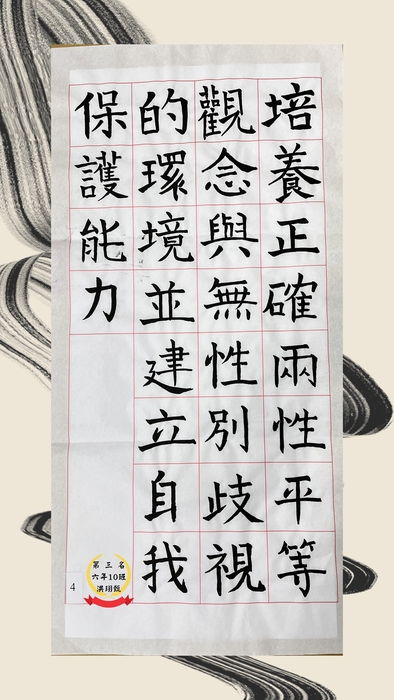 培養正確兩性平等
觀念與無性別歧視
的環境並建立自我
保護能力
4
第三名
六年10班
洪翊甄